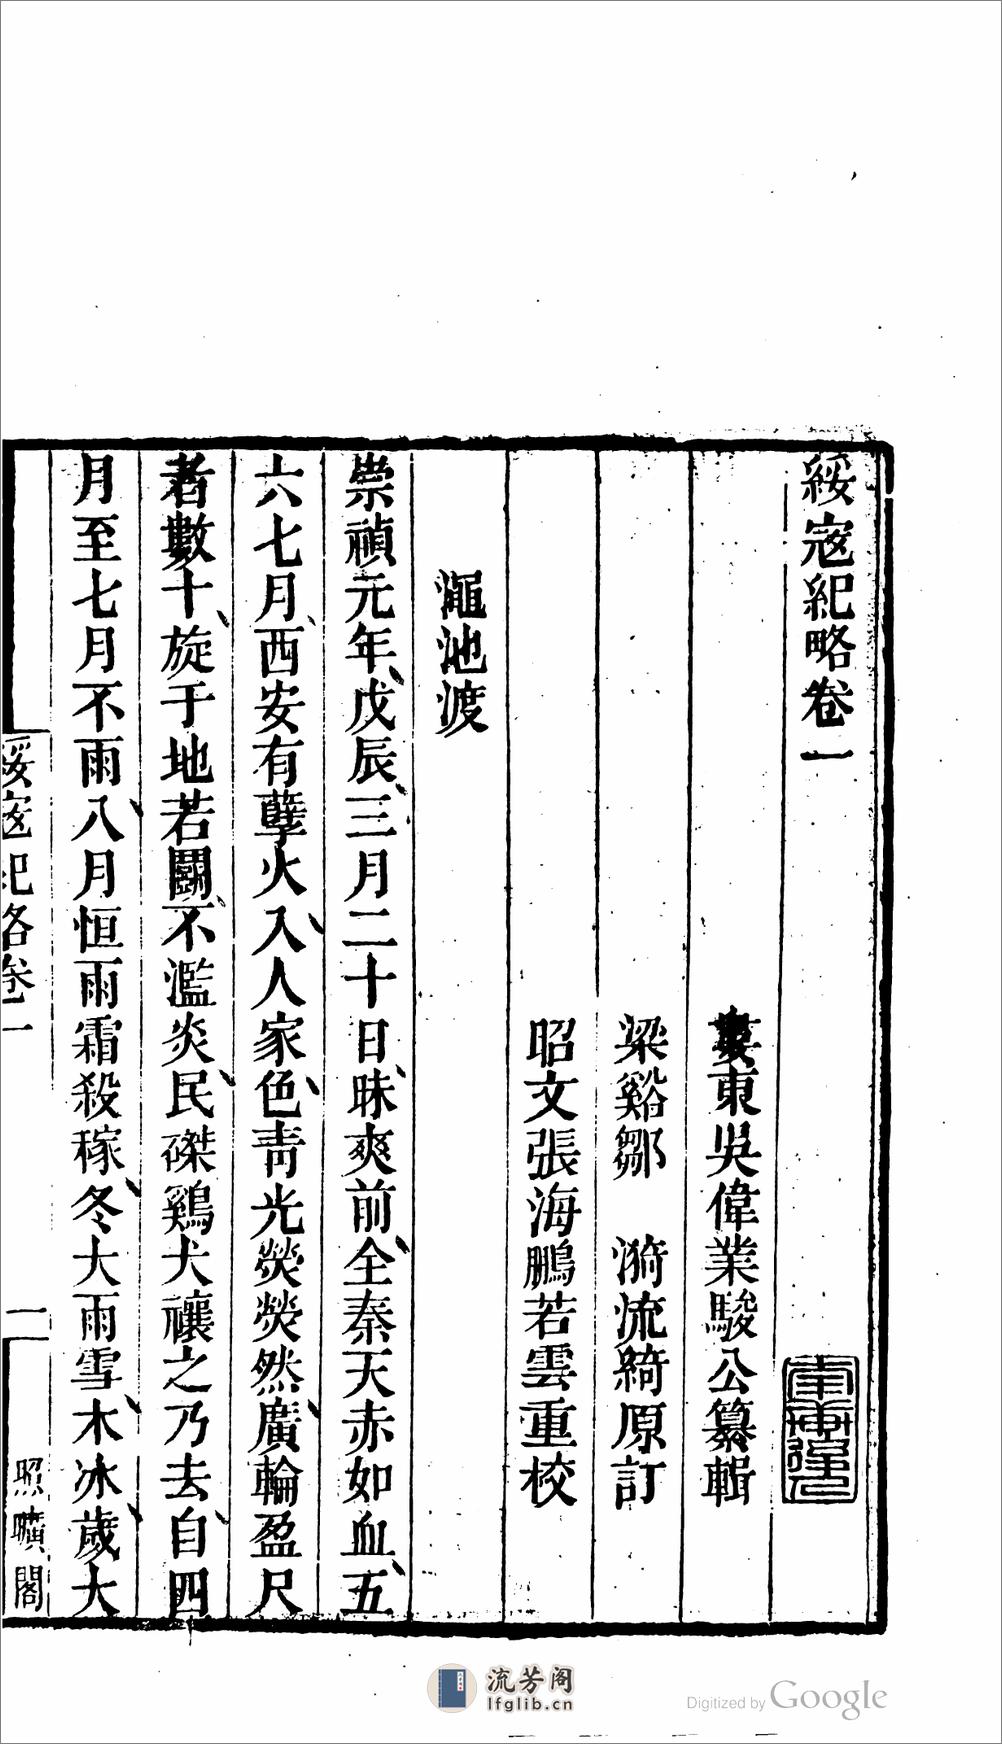 綏寇紀略卷一
婁東吳偉業駿公纂輯
梁谿鄒　漪流綺原訂
昭文張海鵬若雲重校
澠池渡
崇禎元年戊辰三月二十日昧爽前全秦天赤如血五
六七月西安有孽火入人家色靑光熒熒然廣輪盈尺
者數十旋于地若鬭不濫炎民磔鷄犬禳之乃去自四
月至七月不雨八月恒雨霜殺稼冬大雨雪木冰歲大
綏寇紀略卷一
一
照曠閣
流芳阁
lfglib.cn
Digitized by Google